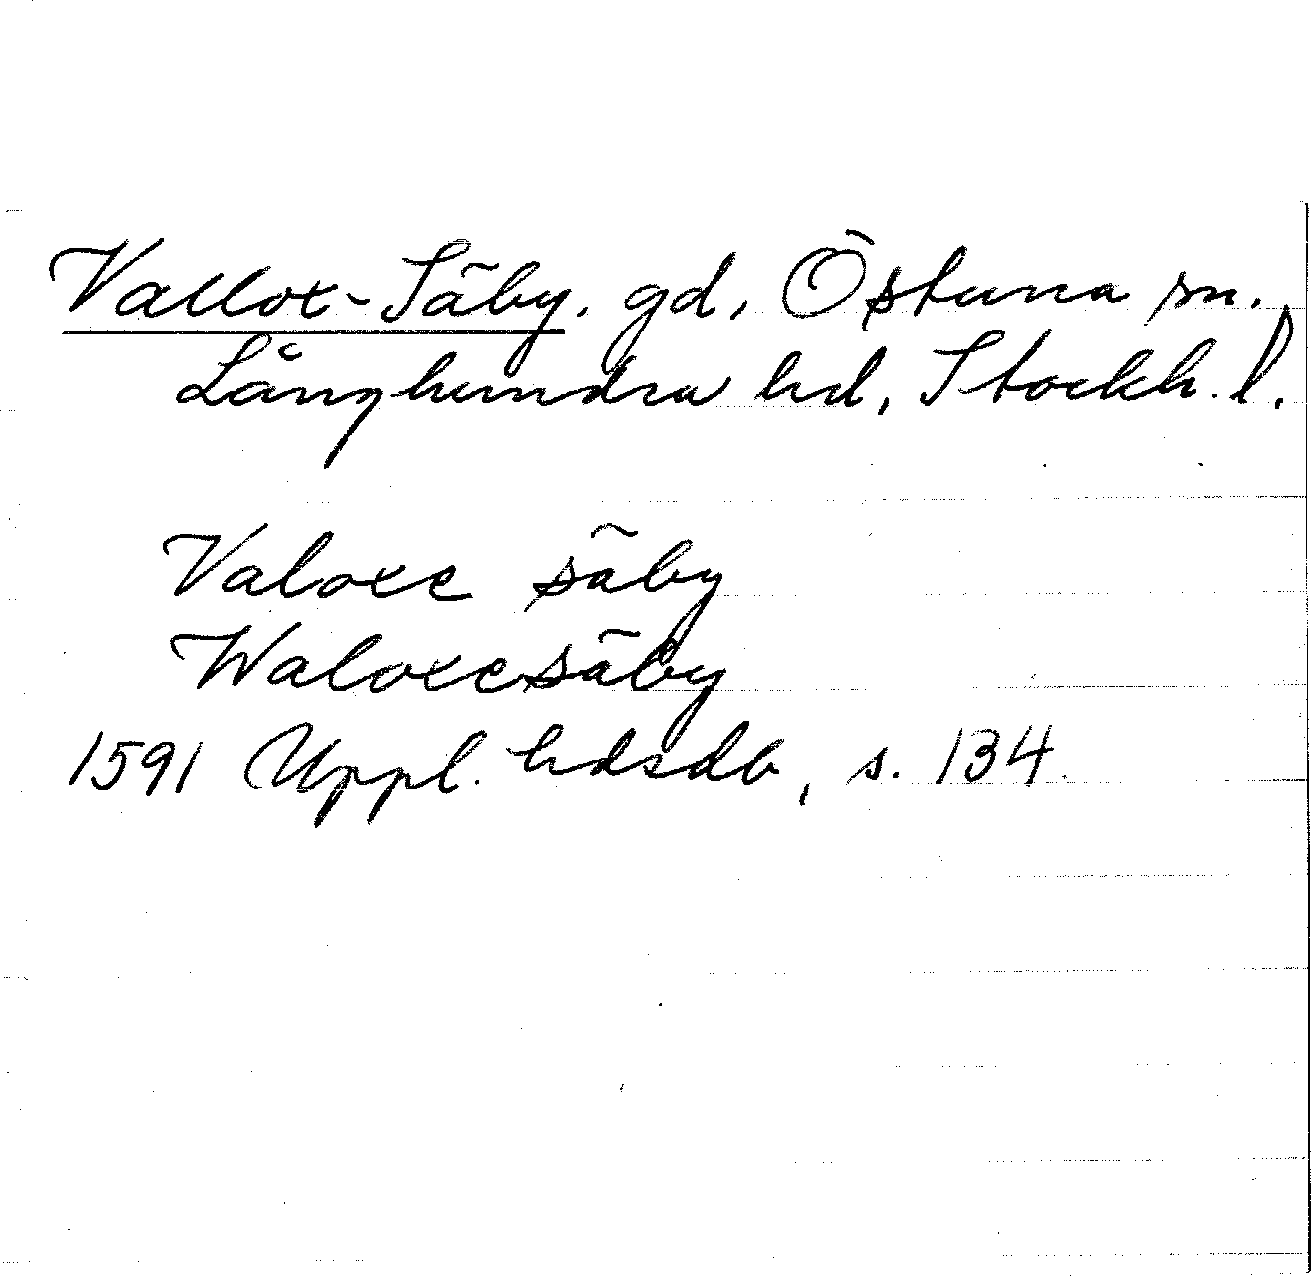 Vallox-Säby, gd, Östuna sn.
Långhundra hd, Stockh. l.
Valoxe säby
Waloxesäby
1591 Uppl. hdsdb, s. 134.